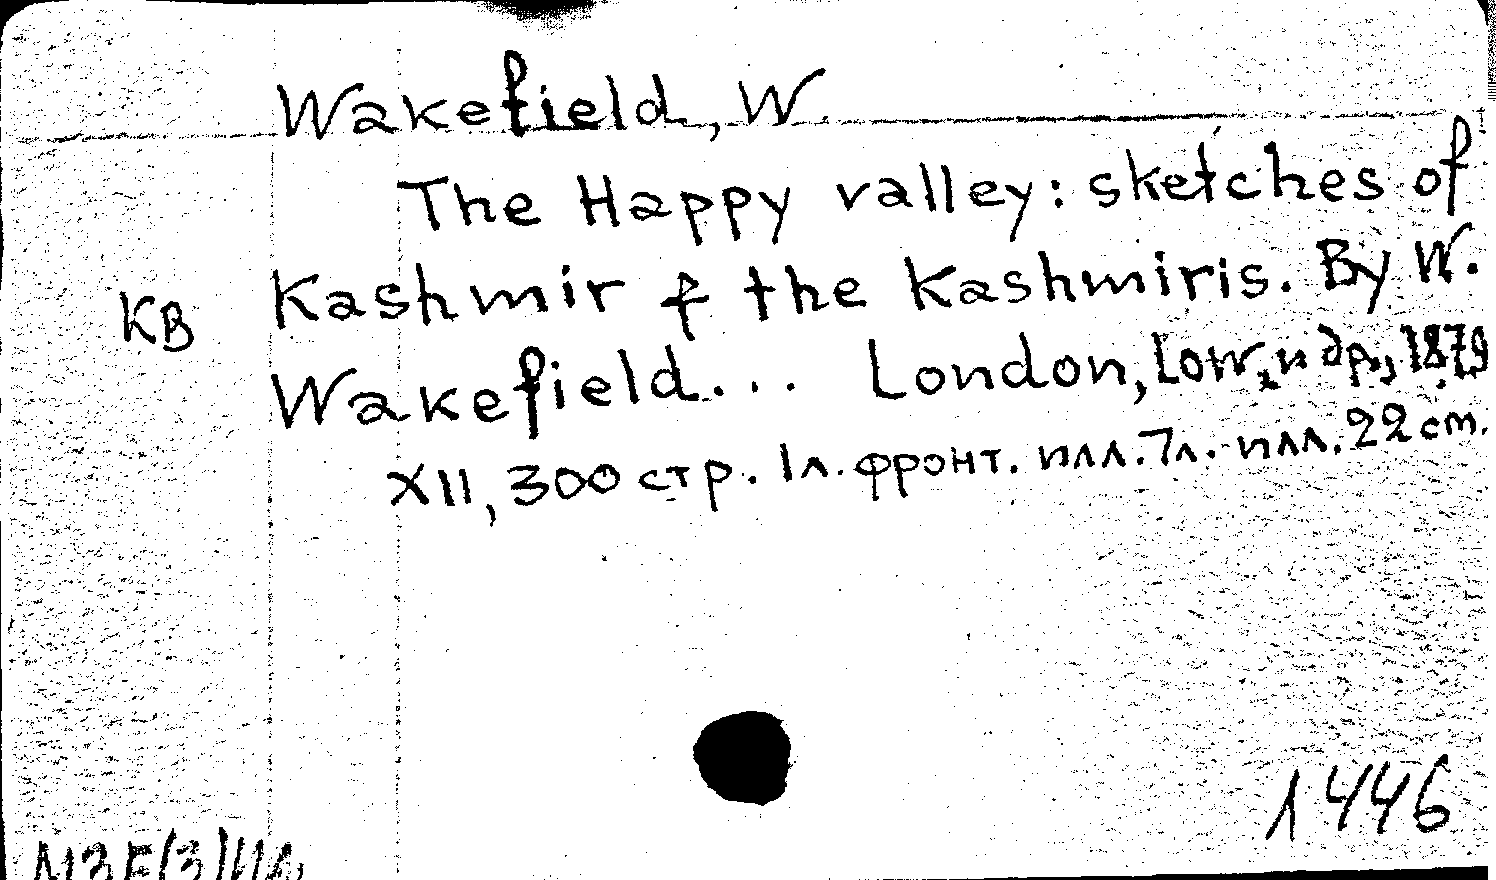 Wakefield, W.
The Happy valley: sketches of
Kashmir & the Kashmiris. By W.
КВ
Wakefield... London, Low, и др., 1879
XII, 300 стр. 1л. фронт. илл. 7л. илл. 22 cm.
1446